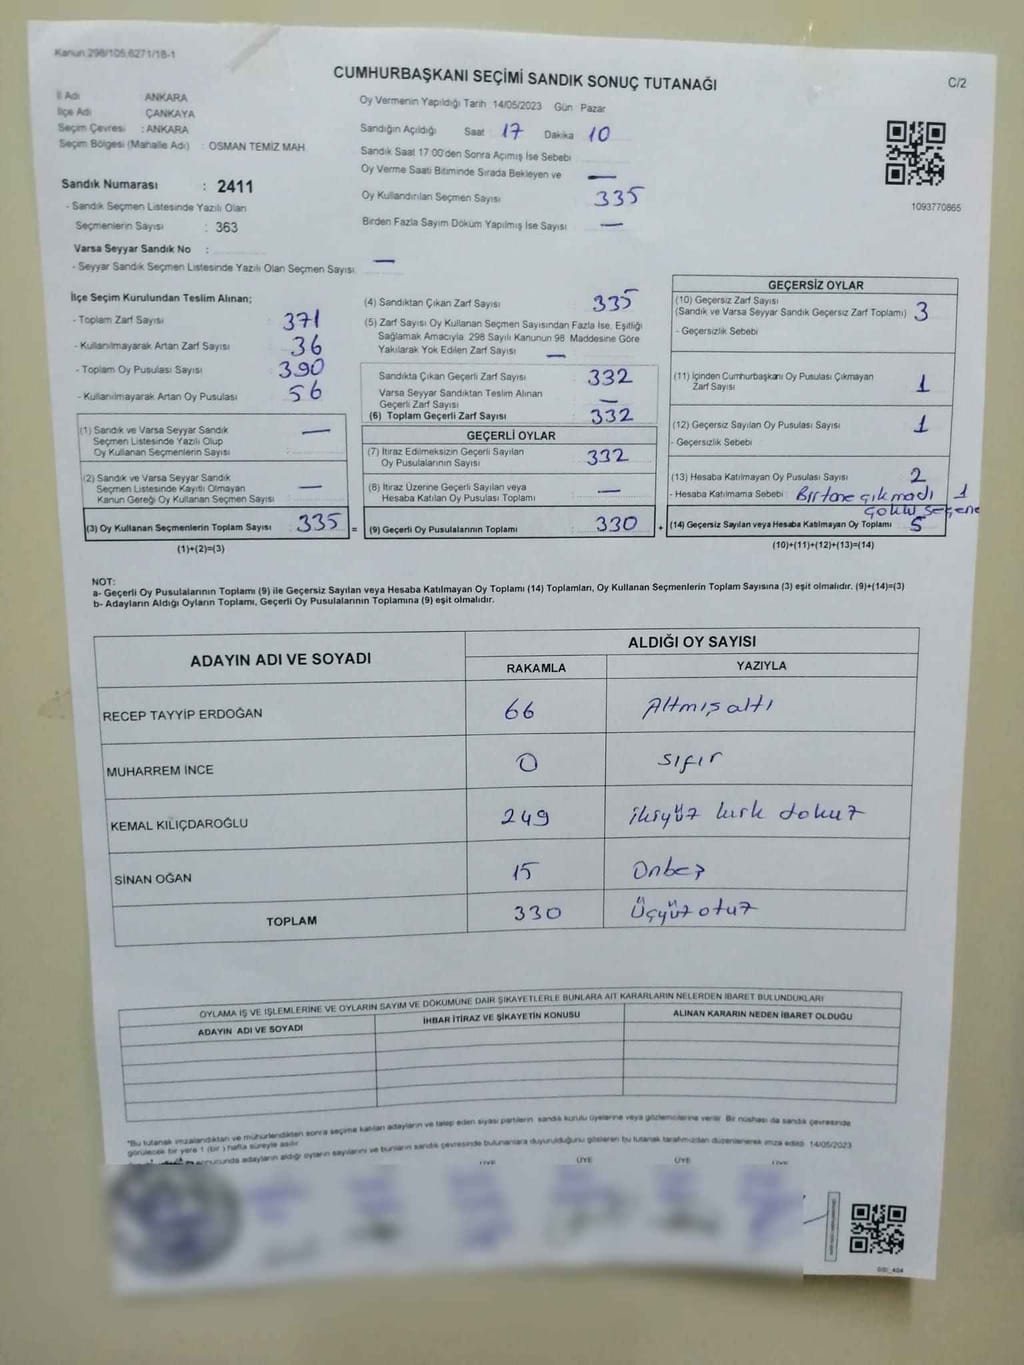 Kanun 298/105,6271/18-1
CUMHURBAŞKANI SEÇİMİ SANDIK SONUÇ TUTANAĞI
C/2
İl Adı ANKARA
İlçe Adı ÇANKAYA
Seçim Çevresi : ANKARA
Seçim Bölgesi (Mahalle Adı) : OSMAN TEMİZ MAH
Sandık Numarası : 2411
- Sandık Seçmen Listesinde Yazılı Olan
Seçmenlerin Sayısı : 363
Varsa Seyyar Sandık No :
- Seyyar Sandık Seçmen Listesinde Yazılı Olan Seçmen Sayısı —
Oy Vermenin Yapıldığı Tarih 14/05/2023 Gün Pazar
Sandığın Açıldığı Saat 17 Dakika 10
Sandık Saat 17:00'den Sonra Açımış İse Sebebi
Oy Verme Saati Bitiminde Sırada Bekleyen ve —
Oy Kullandırılan Seçmen Sayısı 335
Birden Fazla Sayım Döküm Yapılmış İse Sayısı —
1093770865
İlçe Seçim Kurulundan Teslim Alınan;
- Toplam Zarf Sayısı 371
- Kullanılmayarak Artan Zarf Sayısı 36
- Toplam Oy Pusulası Sayısı 390
- Kullanılmayarak Artan Oy Pusulası 56
(1) Sandık ve Varsa Seyyar Sandık —
Seçmen Listesinde Yazılı Olup
Oy Kullanan Seçmenlerin Sayısı
(2) Sandık ve Varsa Seyyar Sandık
Seçmen Listesinde Kayıtlı Olmayan —
Kanun Gereği Oy Kullanan Seçmen Sayısı
(3) Oy Kullanan Seçmenlerin Toplam Sayısı 335 =
(1)+(2)=(3)
(4) Sandıktan Çıkan Zarf Sayısı 335
(5) Zarf Sayısı Oy Kullanan Seçmen Sayısından Fazla İse, Eşitliği
Sağlamak Amacıyla 298 Sayılı Kanunun 98. Maddesine Göre
Yakılarak Yok Edilen Zarf Sayısı —
Sandıkta Çıkan Geçerli Zarf Sayısı 332
Varsa Seyyar Sandıktan Teslim Alınan
Geçerli Zarf Sayısı —
(6) Toplam Geçerli Zarf Sayısı 332
GEÇERLİ OYLAR
(7) İtiraz Edilmeksizin Geçerli Sayılan
Oy Pusulalarının Sayısı 332
(8) İtiraz Üzerine Geçerli Sayılan veya
Hesaba Katılan Oy Pusulası Toplamı —
(9) Geçerli Oy Pusulalarının Toplamı 330 +
GEÇERSİZ OYLAR
(10) Geçersiz Zarf Sayısı
(Sandık ve Varsa Seyyar Sandık Geçersiz Zarf Toplamı) 3
- Geçersizlik Sebebi
(11) İçinden Cumhurbaşkanı Oy Pusulası Çıkmayan
Zarf Sayısı 1
(12) Geçersiz Sayılan Oy Pusulası Sayısı 1
- Geçersizlik Sebebi
(13) Hesaba Katılmayan Oy Pusulası Sayısı 2
- Hesaba Katılmama Sebebi Birtane çıkmadı 1
Çoklu
(14) Geçersiz Sayılan veya Hesaba Katılmayan Oy Toplamı 5
(10)+(11)+(12)+(13)=(14)
NOT:
a- Geçerli Oy Pusulalarının Toplamı (9) ile Geçersiz Sayılan veya Hesaba Katılmayan Oy Toplamı (14) Toplamları, Oy Kullanan Seçmenlerin Toplam Sayısına (3) eşit olmalıdır. (9)+(14)=(3)
b- Adayların Aldığı Oyların Toplamı, Geçerli Oy Pusulalarının Toplamına (9) eşit olmalıdır.
ADAYIN ADI VE SOYADI
ALDIĞI OY SAYISI
RAKAMLA YAZIYLA
RECEP TAYYİP ERDOĞAN 66 Altmışaltı
MUHARREM İNCE 0 sıfır
KEMAL KILIÇDAROĞLU 249 ikiyüz kırk dokuz
SİNAN OĞAN 15 Onbeş
TOPLAM 330 Üçyüz otuz
OYLAMA İŞ VE İŞLEMLERİNE VE OYLARIN SAYIM VE DÖKÜMÜNE DAİR ŞİKAYETLERLE BUNLARA AİT KARARLARIN NELERDEN İBARET BULUNDUKLARI
ADAYIN ADI VE SOYADI İHBAR İTİRAZ VE ŞİKAYETİN KONUSU ALINAN KARARIN NEDEN İBARET OLDUĞU
"Bu tutanak imzalandıktan ve mühürlendikten sonra seçime katılan adayların ve talep eden siyasi partilerin sandık kurulu üyelerine veya gözlemcilerine verilir. Bir nüshası da sandık çevresinde
görülecek bir yere 1 (bir ) hafta süreyle asılır.
sonucunda adayların aldığı oyların sayılarını ve bunların sandık çevresinde bulunanlara duyurulduğunu gösteren bu tutanak tarafımızdan düzenlenerek imza edildi. 14/05/2023
ÜYE ÜYE ÜYE ÜYE